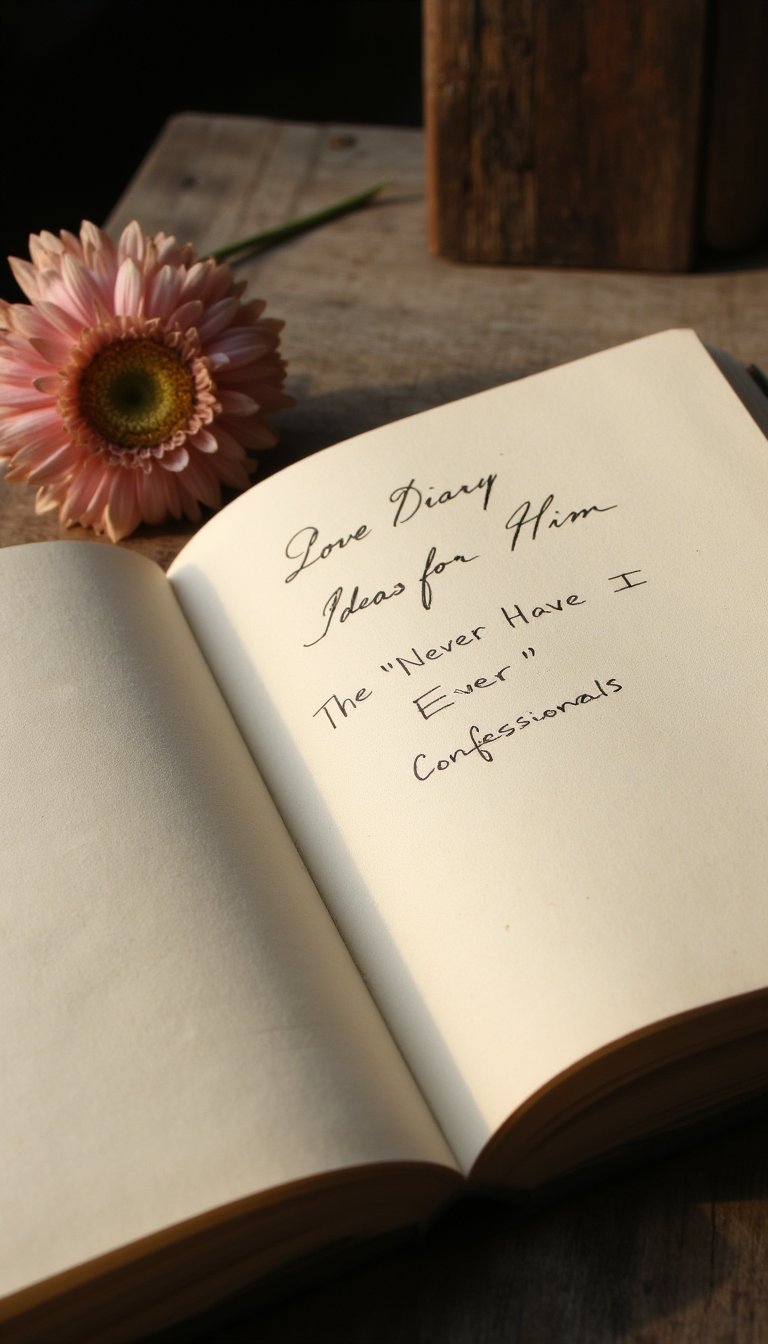 Love Diary
Ideas for Him
The "Never Have I
Ever"
Confessionals